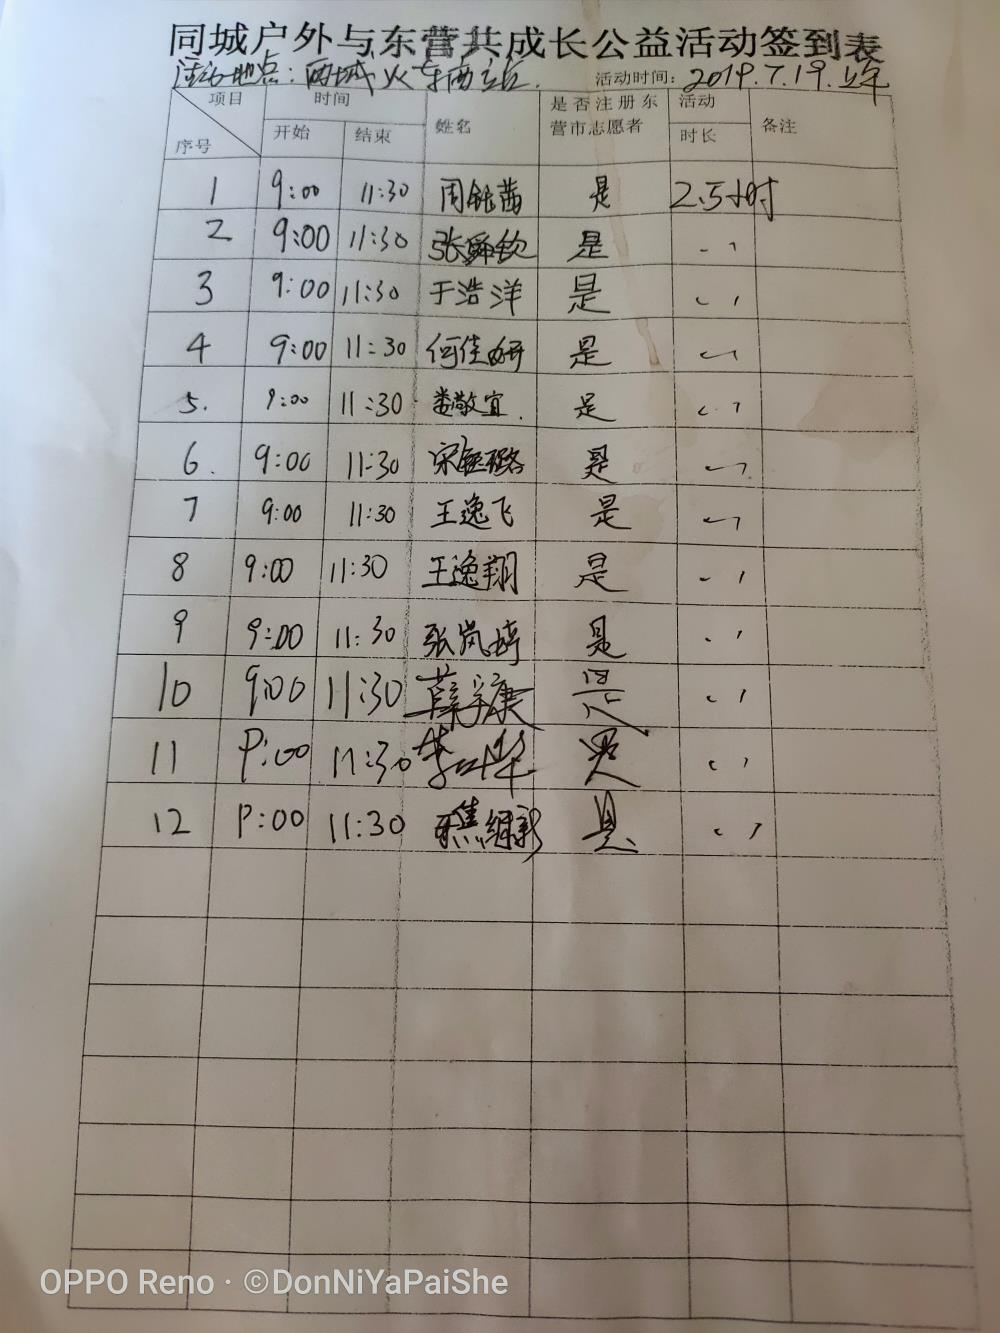 同城户外与东营共成长公益活动签到表
活动地点：西城火车西站. 活动时间：2019.7.19.上午
项目 序号 时间 开始 结束 姓名 是否注册东营市志愿者 活动时长 备注
1 9:00 11:30 周铭茜 是 2.5小时
2 9:00 11:30 张舜钦 是 〃
3 9:00 11:30 于浩洋 是 〃
4 9:00 11:30 何佳妍 是 〃
5. 9:00 11:30 娄敬宜. 是 〃
6. 9:00 11:30 宋钰璐 是 〃
7 9:00 11:30 王逸飞 是 〃
8 9:00 11:30 王逸翔 是 〃
9 9:00 11:30 张岚婷 是 〃
10 9:00 11:30 薛宇庚 是 〃
11 9:00 11:30 李叶华 是 〃
12 9:00 11:30 是 〃
OPPO Reno · ©DonNiYaPaiShe